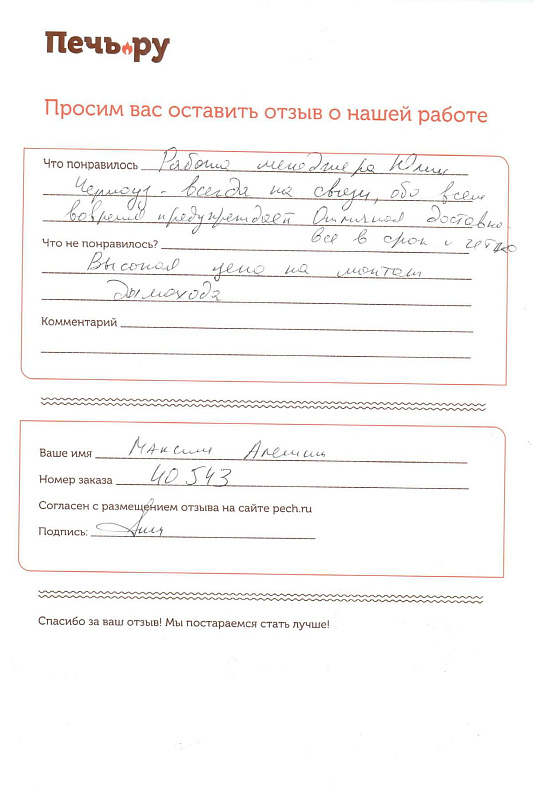 Печь.ру
Просим вас оставить отзыв о нашей работе
Что понравилось Работа менеджера Юлии
- всегда на связи, обо всем
вовремя предупреждает Отличная доставка.
все в срок и четко
Что не понравилось?
Высокая цена на монтаж
дымохода
Комментарий
Ваше имя Максим
Номер заказа 40543
Согласен с размещением отзыва на сайте pech.ru
Подпись:
Спасибо за ваш отзыв! Мы постараемся стать лучше!